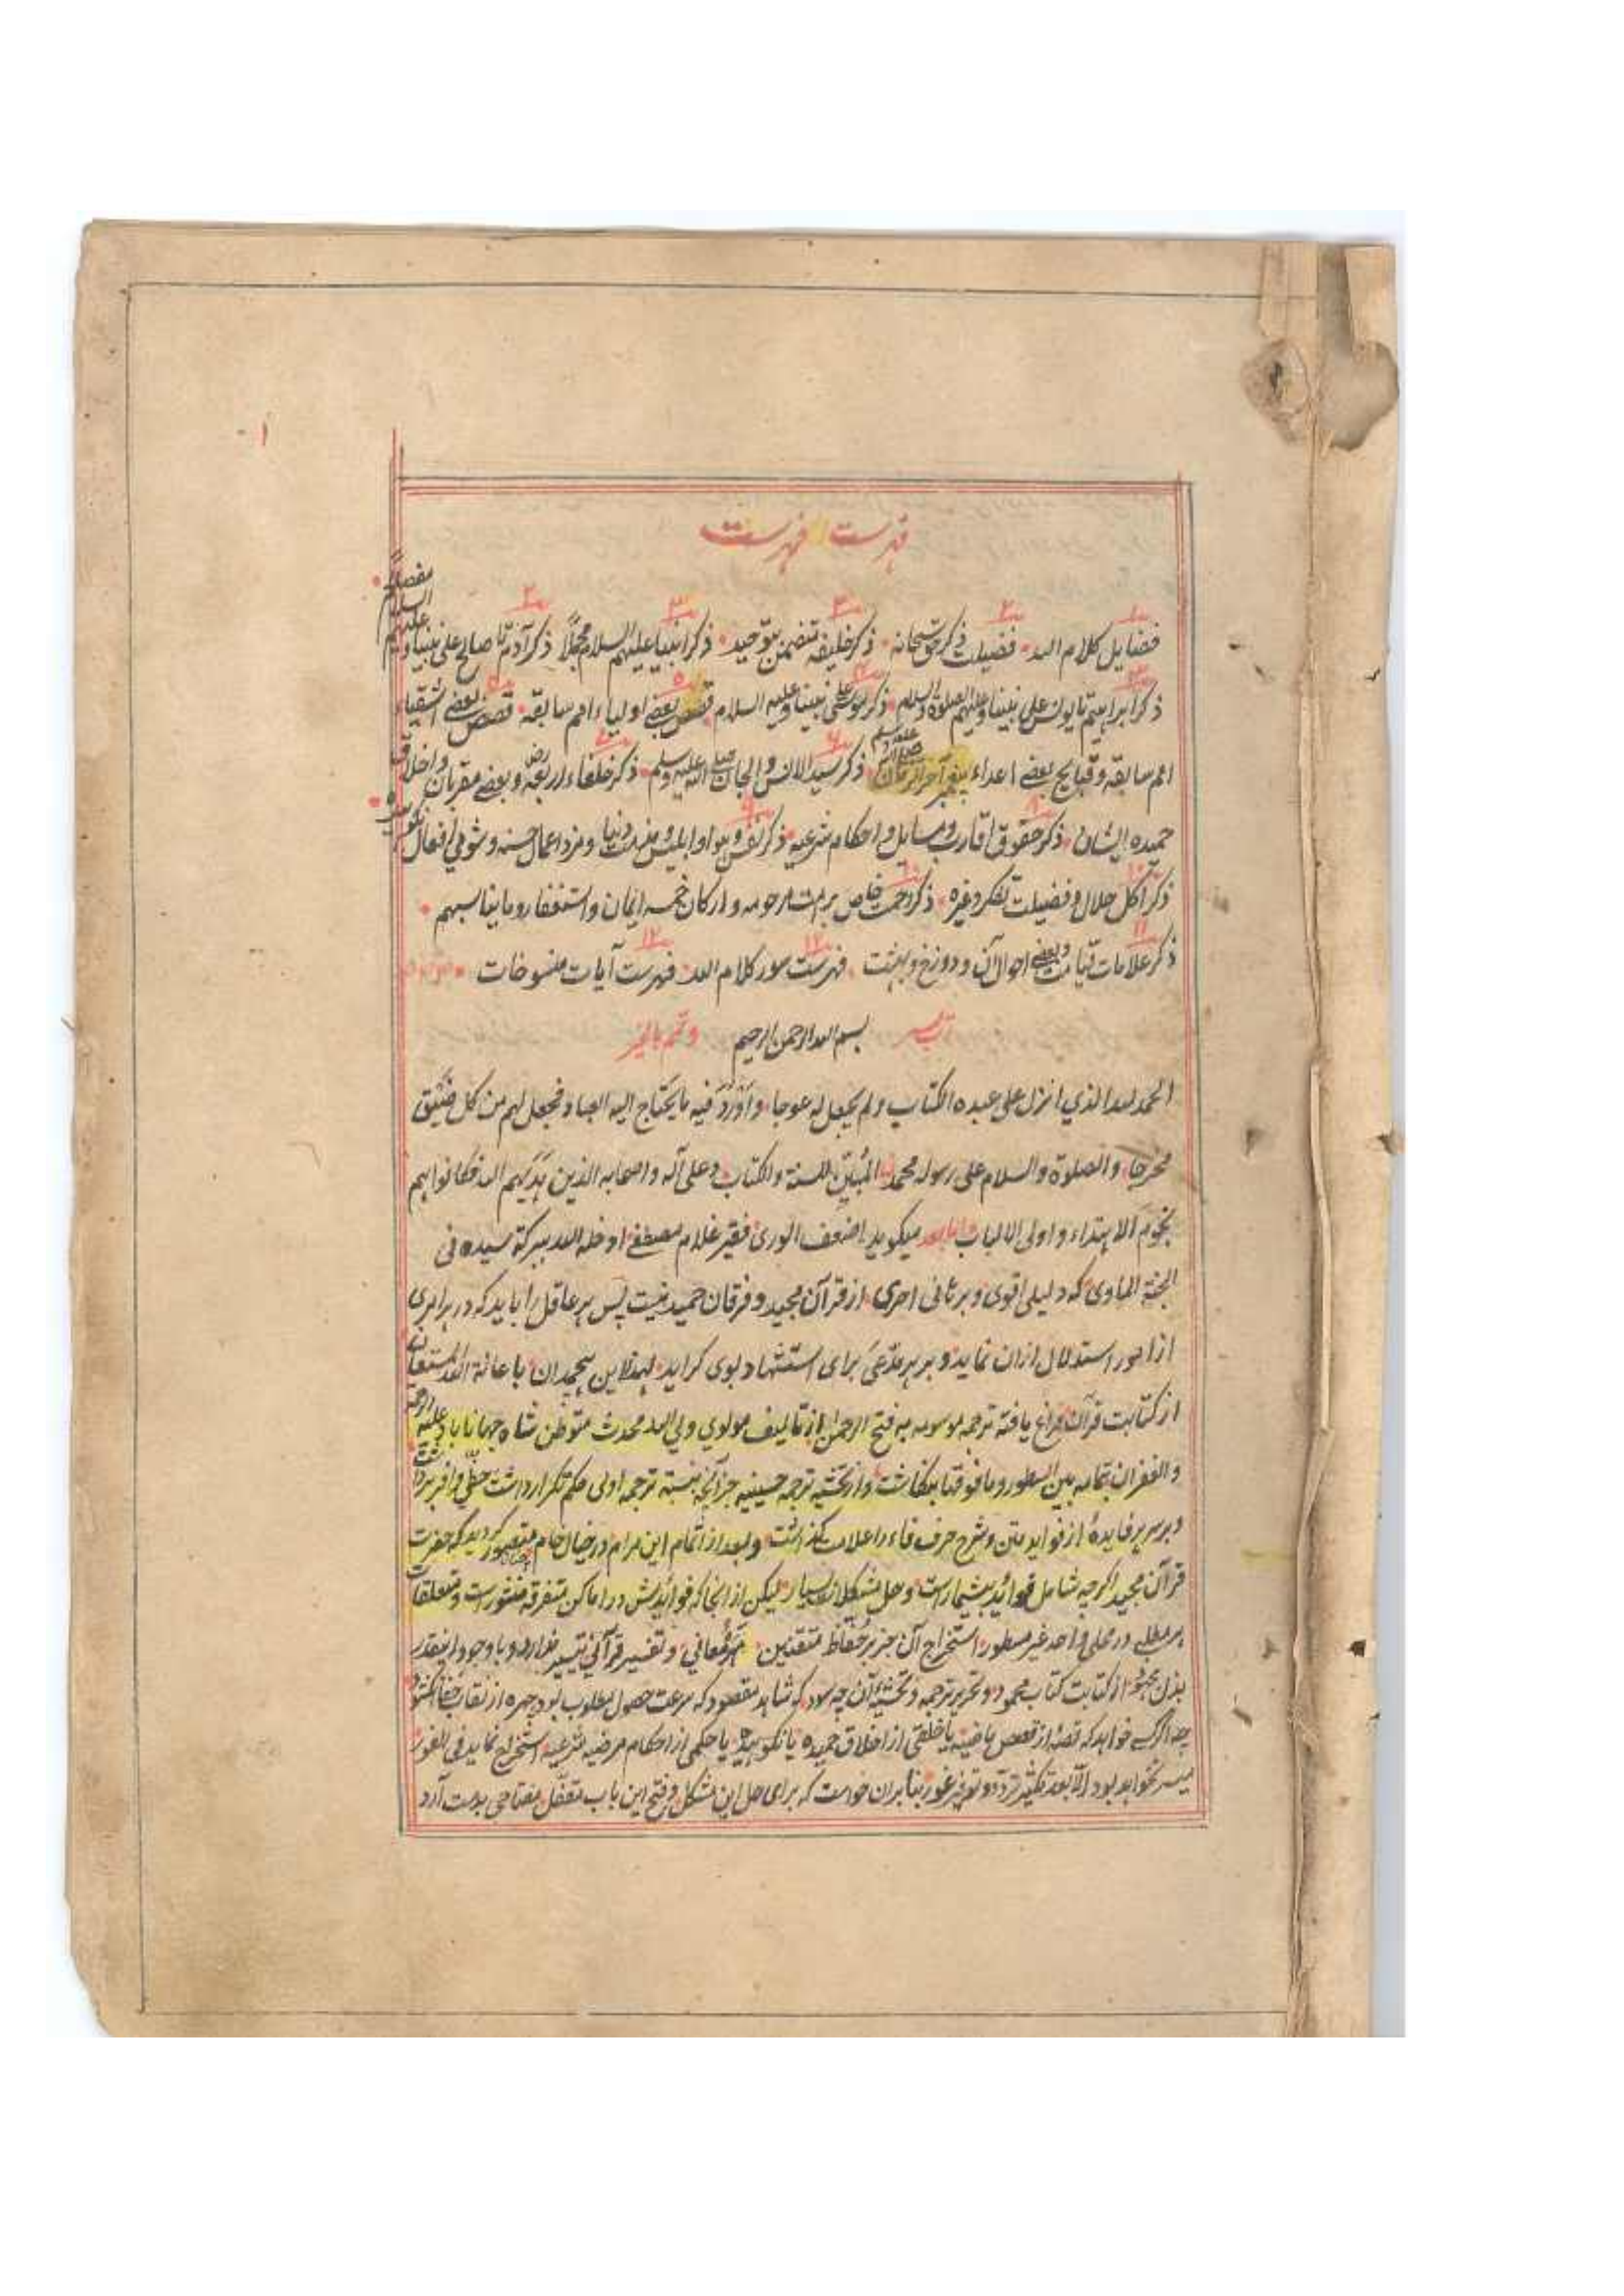 ۱
فهرست الفهرست
۱ ۲ ۳ ۳ ۲
فضایل کلام الله فضیلت ذکر حق سبحانه ذکر خلیفه متضمن بتوحید ذکر انبیا علیهم السلام مجملاً ذکر آدم تا صالح علی نبینا و علیهم السلام مفصلاً
ذکر ابراهیم تا یونس علی نبینا و علیهم الصلوة والسلام ذکر موسی علی نبینا و علیه السلام قصص بعضے اولیاء امم سابقه قصص بعضے اشقیاء
امم سابقه و قبایح بعضے اعداء پیغمبر آخر الزمان ذکر سید الانس والجان صلی الله علیه وسلم ذکر خلفاء اربعه رض و بعضے مقربان و اخلاق
حمیده ایشان ذکر حقوق اقارب و مسایل و احکام شرعیه ذکر نفس و هوا و ابلیس و مذمت دنیا و مزد اعمال حسنه و شومی افعال نکوهیده
ذکر اکل حلال و فضیلت تفکر و غیره ذکر رحمت خاص بر امت مرحومه و ارکان خمسه ایمان و استغفار و ما یناسبهم
۱۱ ۱۲ ۱۲
ذکر علامات قیامت و بعضے احوال آن و دوزخ و بهشت فهرست سور کلام الله فهرست آیات منسوخات
رب یسر بسم الله الرحمن الرحیم و تمم بالخیر
الحمد لله الذی انزل علی عبده الکتاب ولم یجعل له عوجا و اَوْرَدَ فیه ما یحتاج الیه العباد فجعل لهم من کل ضَیِّق
مخرجا والصلوة والسلام علی رسوله محمد المُبَیِّن للسنة والکتاب و علی آله و اصحابه الذین هَدَیهم الله فکانوا هم
نجوم الاهتداء و اولی الالباب و اما بعد میگوید اضعف الوری فقیر غلام مصطفے ادخله الله ببرکة سیده فی
الجنة الماوی که دلیلی اقوی و برهانی احری از قرآن مجید و فرقان حمید نیست پس هر عاقل را باید که در هر امری
از امور استدلال ازان نماید و بر هر مدّعیَ برای استشهاد بوی گراید لهذا این هیچمدان باعانة الله المستعان
از کتابت قرآن فراغ یافته ترجمه موسومه به فتح الرحمن از تالیف مولوی ولی الله محدث متوطن شاه جهاناباد علیه الرحمة
والغفران بتمامه بین السطور و ما فوقها بنگاشت و از تحشیه ترجمه حسینیه جز آنچه بنسبة ترجمه اولی حکم تکرار داشت حظّی وافر برداشت
و بر سر هر فایدهٔ از فواید متن و شرح حرف فاء را علامت گذاشت و بعد از اتمام این مرام در خیال خام متصور گردید که حضرت
قرآن مجید اگرچه شامل فوائد بیشمار است و حل مشکلات بسیار لیکن از انجا که فوائدش در اماکن متفرقه منثور است و متعلقات
هر مطلبے در محلی واحد غیر مسطور استخراج آن جز بر حُفّاظ متقنین معانی و تفسیر قرآنی تیسیر ندارد و با وجود اینقدر
بذل از کتابت کتاب محمود و تحریر ترجمه و تحشیهٔ آن چه سود که شاهد مقصود که سرعت حصول مطلوب بود چهره از نقاب خفا نکشود
چه اگر کسے خواهد که قصهٔ از قصص ماضیه یا خلقی از اخلاق حمیده یا نکوهیده یا حکمی از احکام مرضیه شرعیه استخراج نماید فی الفور
میسر نخواهد بود الّا بعد تکثیر تردّد و غور بنابران خواست که برای حل این مشکل و فتح این باب مقفّل مفتاحی بدست آرد